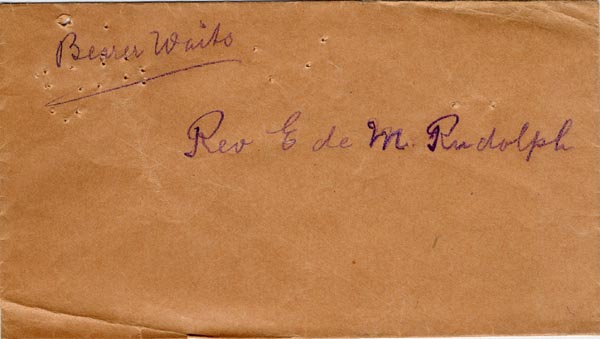 Bearer Waits
Rev E de M. Rudolph